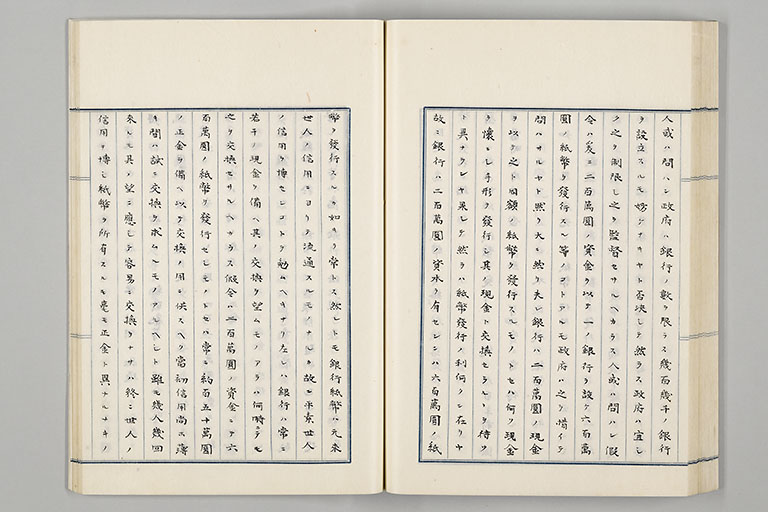 人或ハ問ハン政府ハ銀行ノ數ヲ限ラス幾百幾千ノ銀行
ヲ設立スルモ妨ケナキヤト否決シテ然ラス政府ハ宜シ
ク之ヲ制限シ之ヲ監督セサルヘカラス人或ハ問ハン假
令ハ爰ニ二百萬圓ノ資金ヲ以テ一銀行ヲ設ケ六百萬
圓ノ紙幣ヲ發行スル等ノコトアルモ政府ハ之ヲ措イテ
問ハサルヤト然リ大ニ然リ夫レ銀行ハ二百萬圓ノ現金
ヲ以テ之ト同額ノ紙幣ヲ發行スルモノトセハ何ヲ現金
ヲ懷ニシ手形ヲ發行シ其ノ現金ト交換セラレンヲ待ツ
ト異ナラレヤ果シテ然ラハ紙幣發行ノ利何クニ在リヤ
故ニ銀行ハ二百萬圓ノ資本ヲ有セレハ六百萬圓ノ紙
幣ヲ發行スルヲ如キヲ常トス然レトモ銀行紙幣ハ元來
世人ノ信用ニヨリテ流通スルモノナルカ故ニ平素世人
ノ信用ヲ博センコトヲ勉ムヘキナリ左レハ銀行ハ常ニ
若干ノ現金ヲ備ヘ其ノ交換ヲ望ムモノアラハ何時ニテモ
之ヲ交換セサルヘカラス假令ハ二百萬圓ノ資金ニテ六
百萬圓ノ紙幣ヲ發行セシモノトセハ常ニ約百五十萬圓
ノ正金ヲ備ヘ以テ交換ノ用ニ供スヘク當初信用尚ホ薄
キ間ハ試ニ交換ヲ求ムルモノアルヘシト雖モ幾人幾回
來ルモ其ノ望ニ應シテ容易ニ交換ヲナサハ終ニ世人ノ
信用ヲ博シ紙幣ヲ所有スルモ毫モ正金ト異ナルナキノ